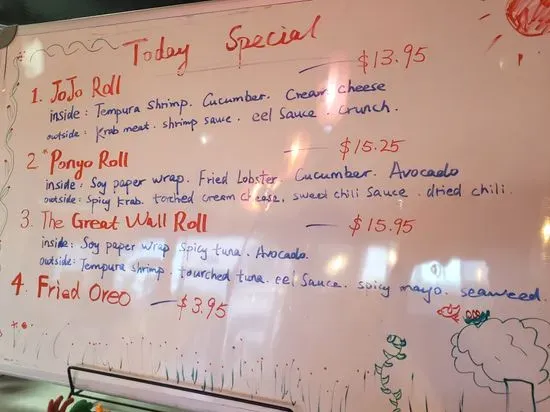 Today Special
1. JoJo Roll — $13.95
inside: Tempura shrimp. Cucumber. Cream cheese
outside: Krab meat. shrimp sauce. eel sauce. crunch.
2 *Ponyo Roll — $15.25
inside: Soy paper wrap. Fried Lobster. Cucumber. Avocado
outside: spicy krab. torched cream cheese. sweet chili sauce. dried chili.
3. The Great Wall Roll — $15.95
inside: Soy paper wrap spicy tuna. Avocado.
outside: Tempura shrimp. tourched tuna. eel sauce. spicy mayo. seaweed.
4. Fried Oreo — $3.95